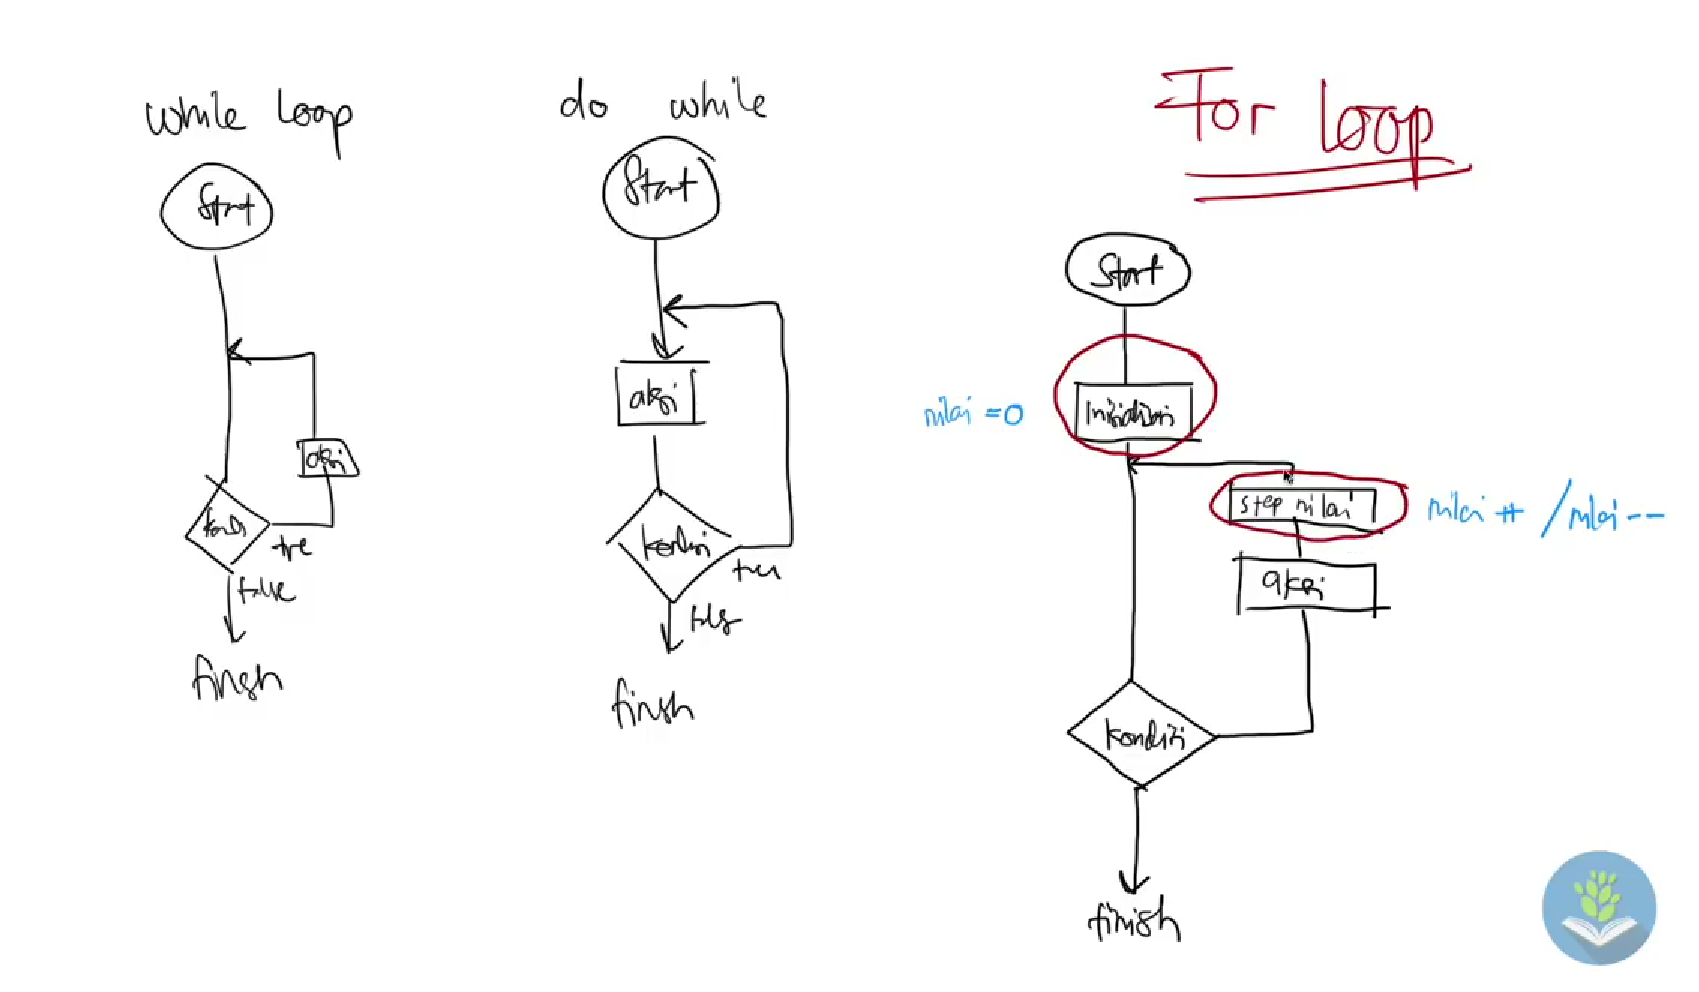 while loop
Start
aksi
true
false
finish
do while
Start
aksi
kondisi
finish
For loop
Start
nilai =0
Inisialisasi
step nilai
nilai ++ / nilai --
aksi
kondisi
finish